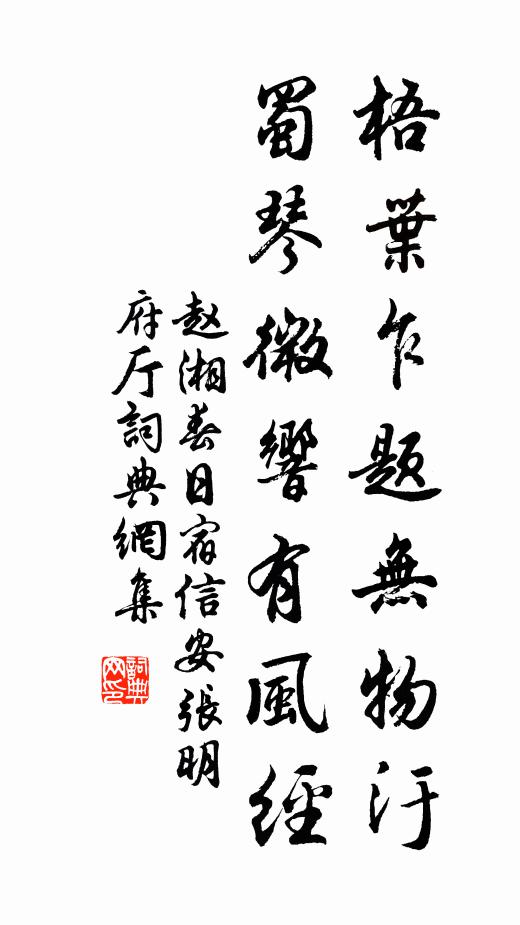 梧葉乍題無物汙
蜀琴微響有風經
赵湘春日宿信安張明
府厅詞典網集
詞典網印